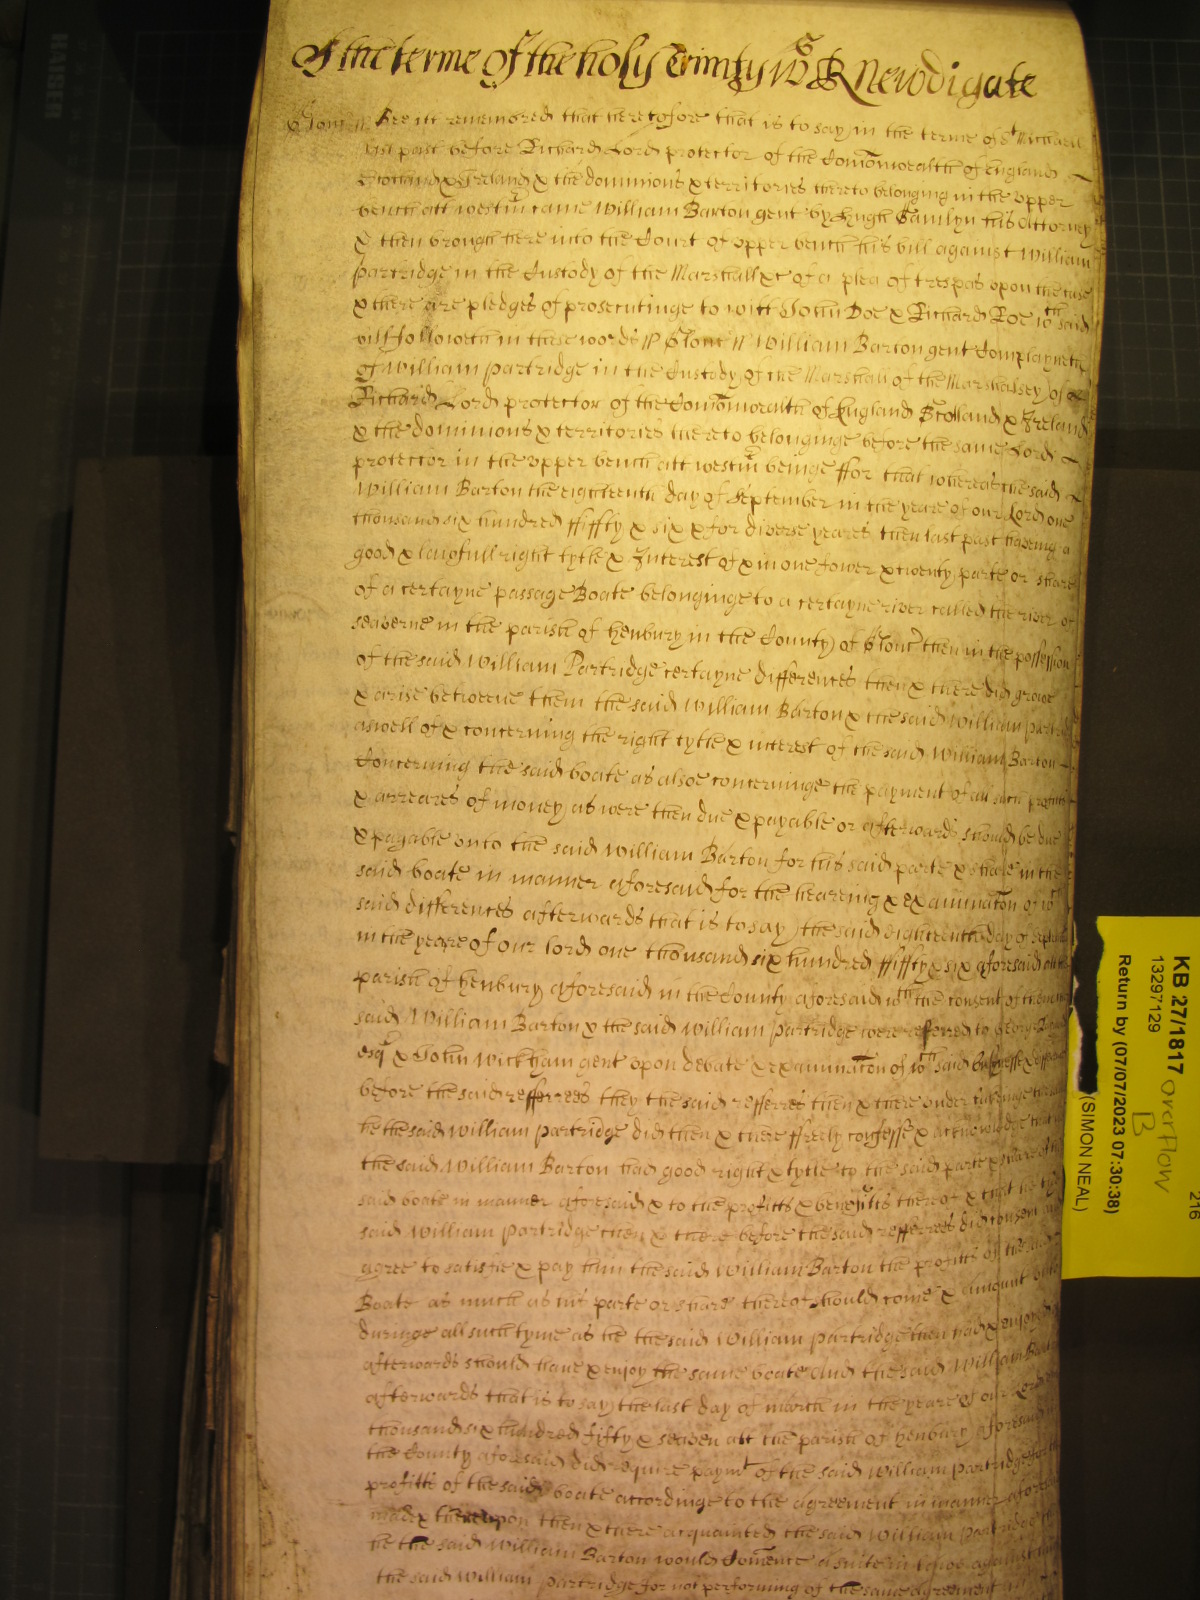 Of the terme Of the holy Trinity 1659 R Newdigate
Glouc // Bee itt remembred that heretofore that is to say in the terme of St Michaell
last past before Richard Lord protector of the Comonwealth of England
Scotland & Ireland & the dominions & territories thereto belonging in the upper
bench att westm came William Barton gent by Hugh Hamlyn his Attorney
& then brough here into the Court of upper bench his bill against William
Partridge in the Custody of the Marshall &c of a plea of trespas upon the case
& there are pledges of prosecutinge to witt John Doe & Richard Roe wch said
bill followeth in these words // Glouc // William Barton gent Complayneth
of William Partridge in the Custody of the Marshall of the Marshalsey of
Richard Lord protector of the Comonwealth of England Scotland & Ireland
& the dominions & territories thereto belonginge before the same Lord
protector in the upper bench att westm beinge ffor that whereas the said
William Barton the eighteenth day of September in the yeare of our Lord one
thousand six hundred ffiffty & six & for diverse yeares then last past haveing a
good & lawfull right tytle & Interest of & in one fower & twenty parte or share
of a certayne passage Boate belonginge to a certayne river called the river of
seaverne in the parish of henbury in the County of Glouc then in the possession
of the said William Partridge certayne differences then & there did growe
& arise betweene them the said William Barton & the said William Partridge
aswell of & concerning the right tytle & interest of the said William Barton
Concerning the said boate as alsoe concerninge the payment of all such profitts
& arreares of money as were then due & payable or afterwards should be due
& payable unto the said William Barton for his said parte & share in the
said boate in manner aforesaid for the hearing & examinacon of wch
said differences afterwards that is to say the said eighteenth day of September
in the yeare of our lord one thousand six hundred ffiffty & six aforesaid att the
parish of henbury aforesaid in the County aforesaid wth the consent of them the
said William Barton & the said William Partridge were referred to George
esqr & John Wickham gent upon debate & examinacon of wch said
before the said refferrees they the said refferres then & there
he the said William Partridge did then & there ffreely confesse & acknowledge that
the said William Barton had good right & tytle to the said parte & share of the
said boate in manner aforesaid & to the profitts & benefitts thereof & that he the
said William Partridge then & there before the said refferrees did consent and
agree to satisfie & pay him the said William Barton the profitts of the said
Boate as much as his parte or share thereof should come & amount unto
duringe all such tyme as he the said William Partridge then had & enjoyed
afterwards should have & enjoy the same boate And the said William Barton
afterwards that is to say the last day of march in the yeare of our Lord
thousand six hundred fifty & seaven att the parish of henbury aforesaid in
the County aforesaid did require paymt of the said William Partridge for the
profitts of the said boate accordinge to the agreement in manner aforesaid
made & thereupon then & there acquainted the said William Partridge
he the said William Barton would Comence a suite in lawe against him
the said William Partridge for not performing of the same agreement
KB 27/1817 overflow B
13297129
Return by (07/07/2023 07:30:38)
(SIMON NEAL)
216